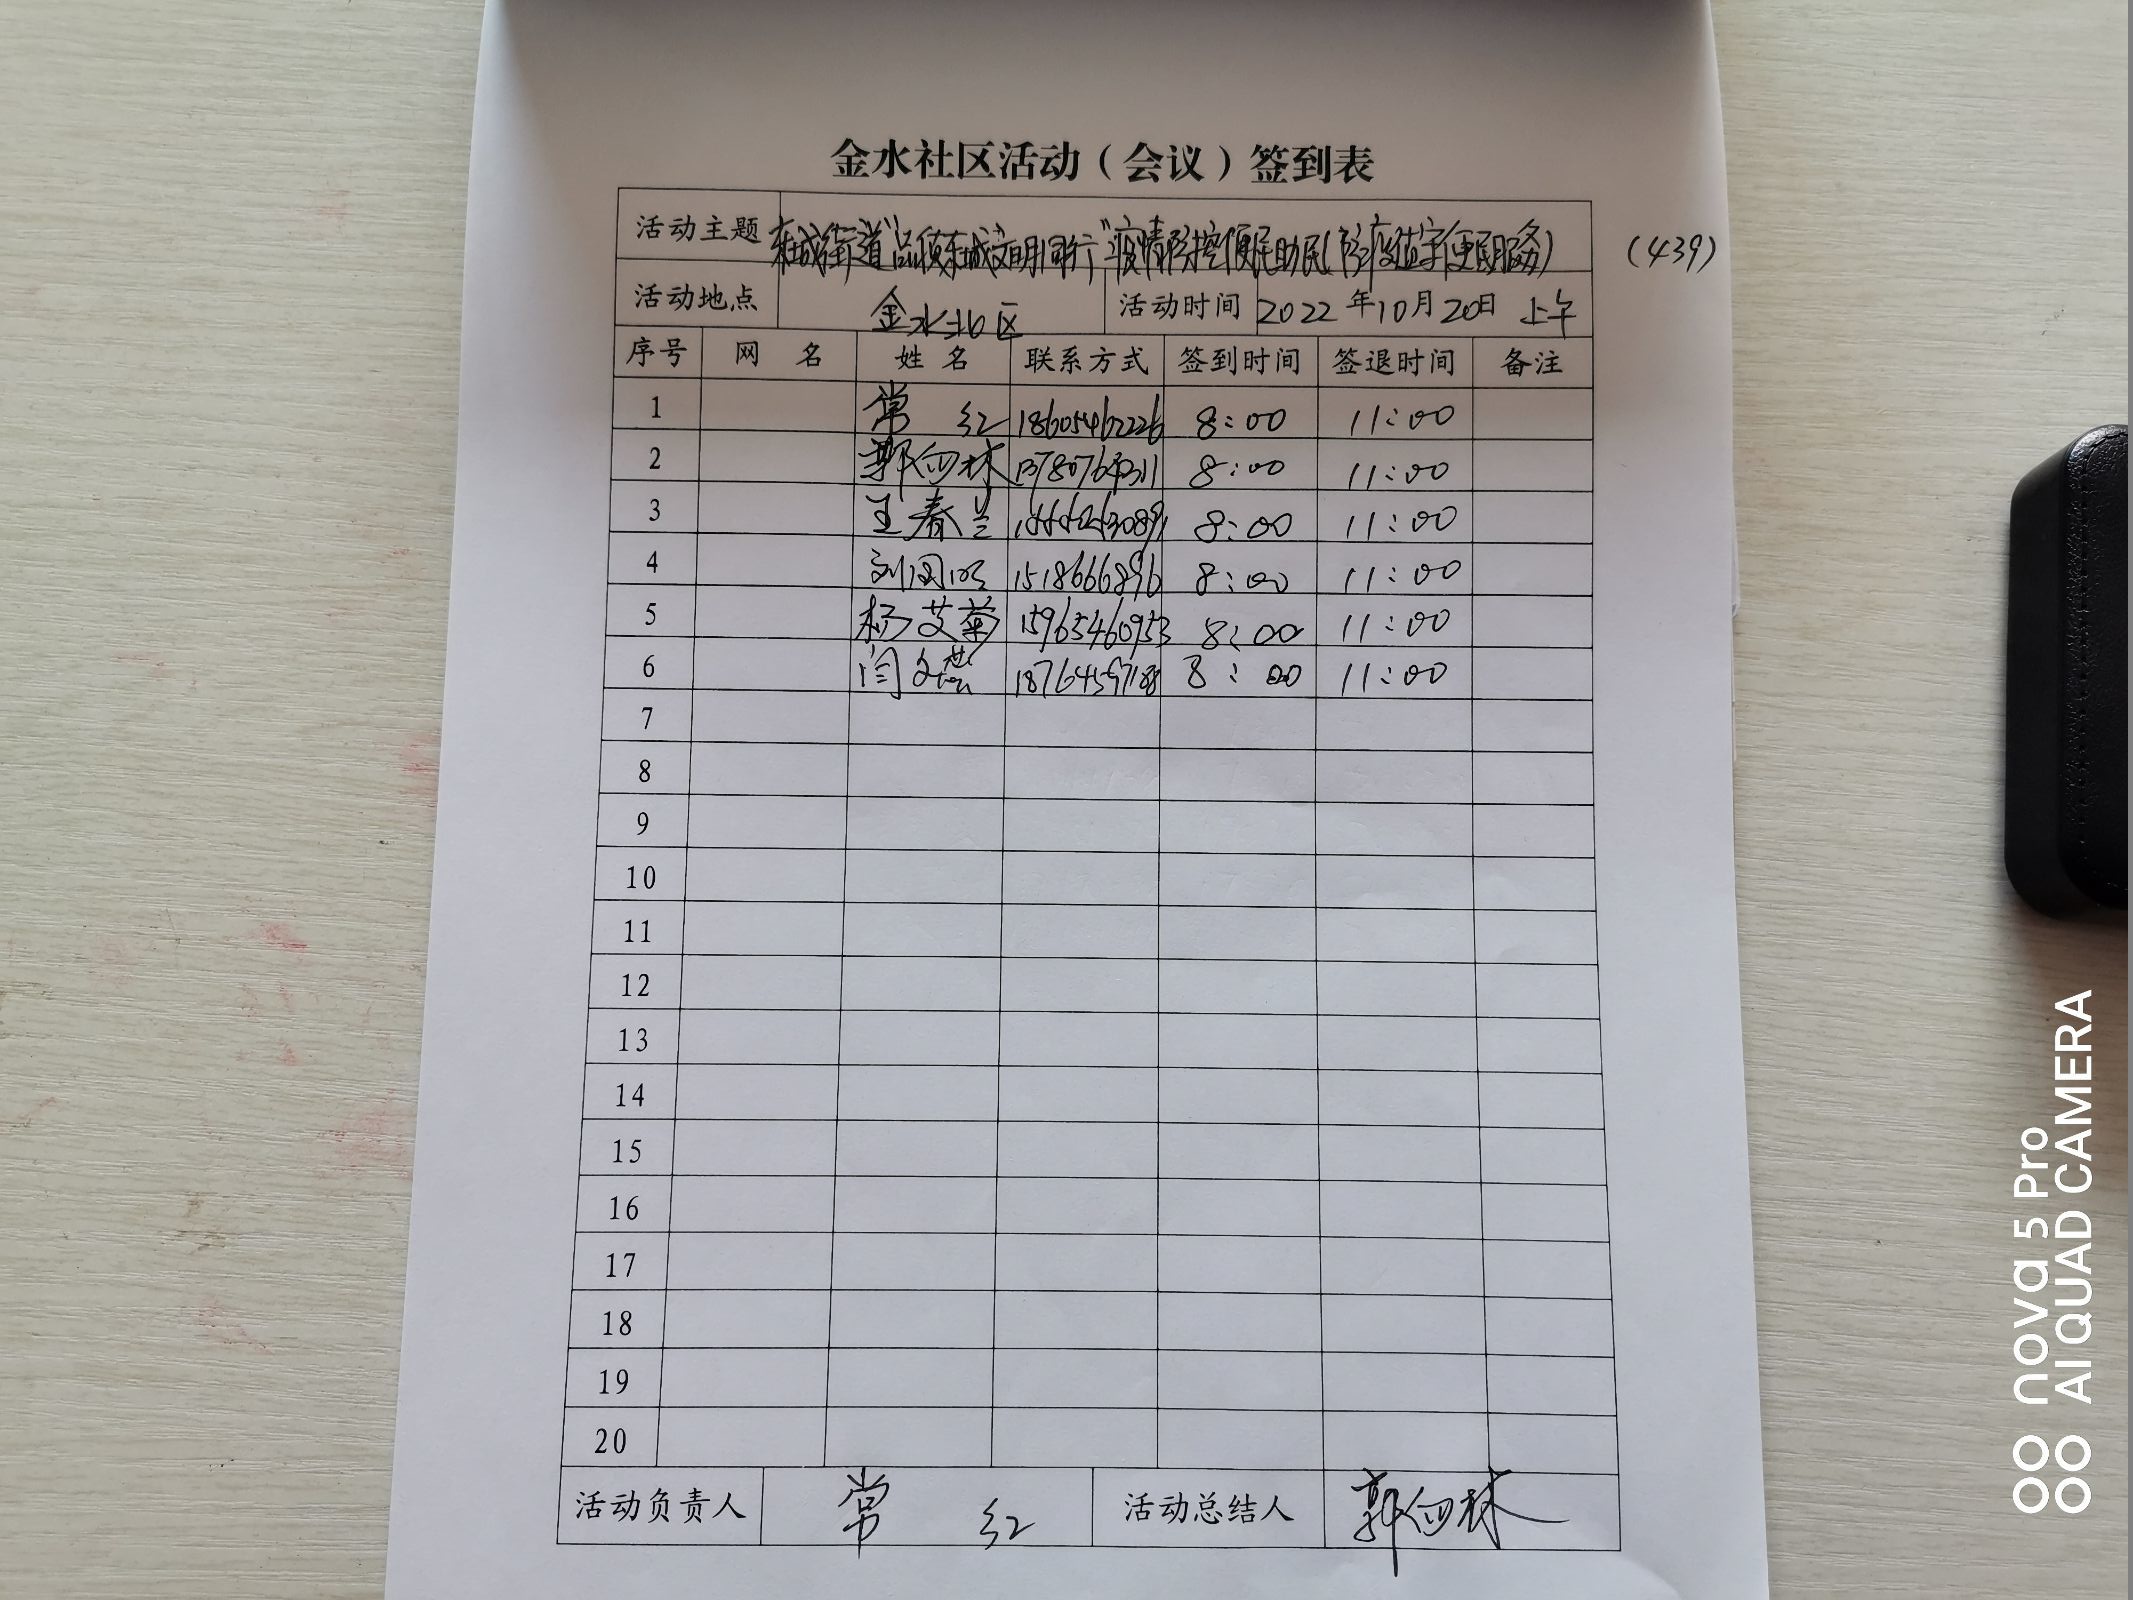 金水社区活动（会议）签到表
活动主题 东城街道"品质东城文明同行"疫情防控便民助民(防疫值守便民服务) (439)
活动地点 金水北区 活动时间 2022年10月20日 上午
序号 网 名 姓 名 联系方式 签到时间 签退时间 备注
1 常 红 18605462226 8:00 11:00
2 郭向林 8:00 11:00
3 王春兰 8:00 11:00
4 1518666896 8:00 11:00
5 杨艾菊 15965460953 8:00 11:00
6 闫文燕 8:00 11:00
7
8
9
10
11
12
13
14
15
16
17
18
19
20
活动负责人 常 红 活动总结人 郭向林
nova 5 Pro
AI QUAD CAMERA